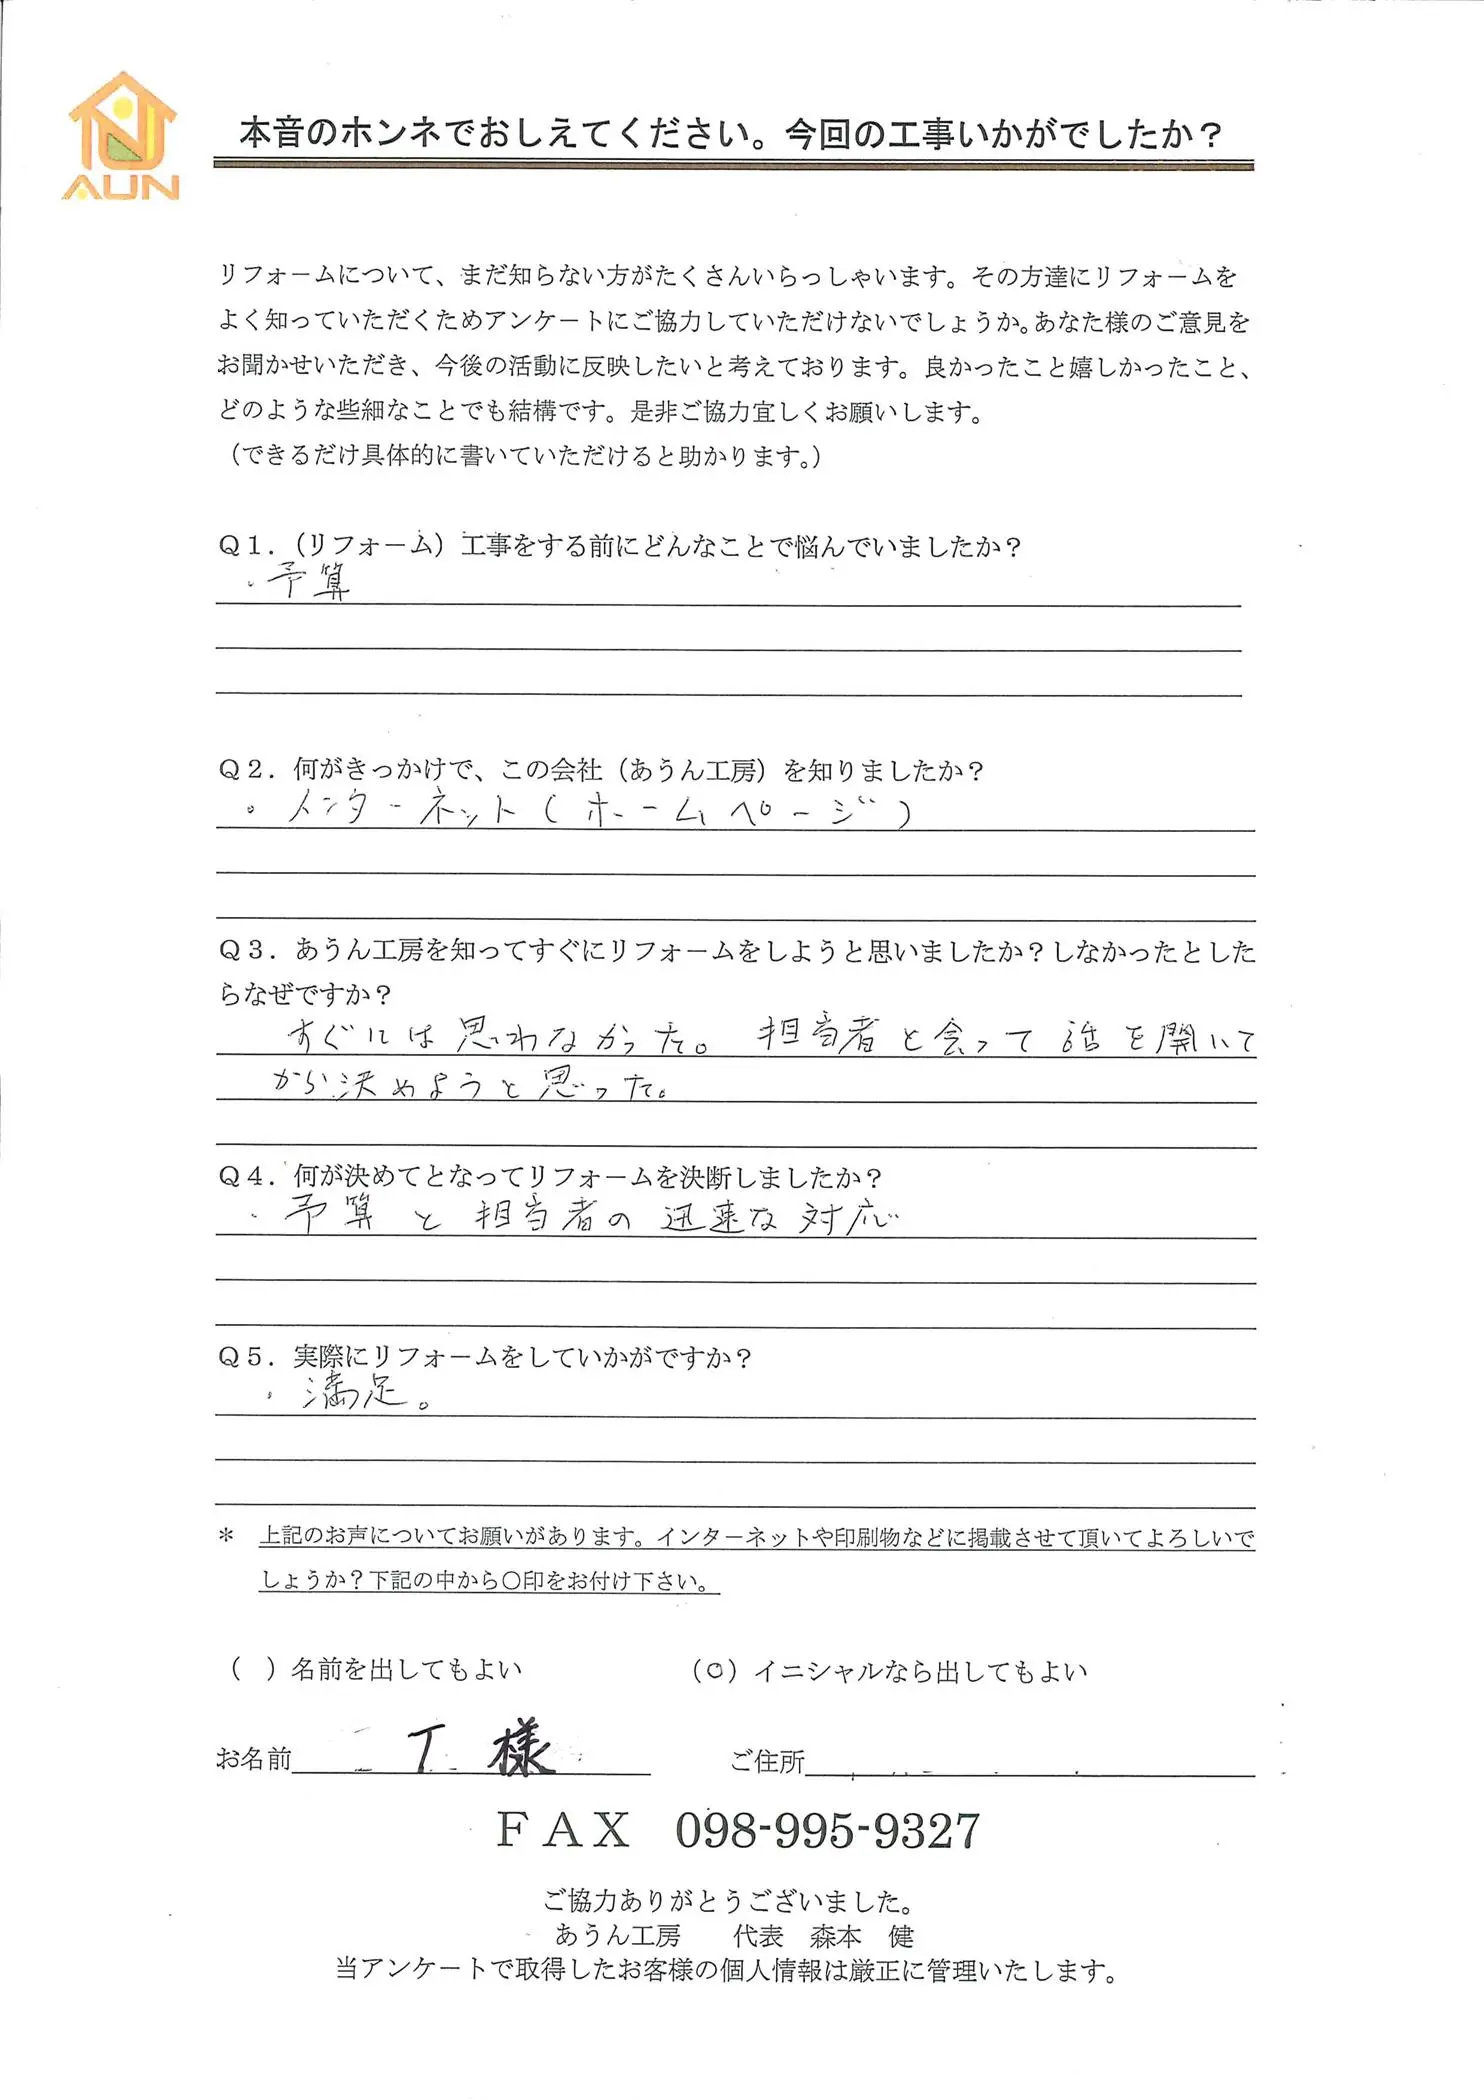 AUN
本音のホンネでおしえてください。今回の工事いかがでしたか？
リフォームについて、まだ知らない方がたくさんいらっしゃいます。その方達にリフォームを
よく知っていただくためアンケートにご協力していただけないでしょうか。あなた様のご意見を
お聞かせいただき、今後の活動に反映したいと考えております。良かったこと嬉しかったこと、
どのような些細なことでも結構です。是非ご協力宜しくお願いします。
（できるだけ具体的に書いていただけると助かります。）
Ｑ１．（リフォーム）工事をする前にどんなことで悩んでいましたか？
・予算
Ｑ２．何がきっかけで、この会社（あうん工房）を知りましたか？
・インターネット（ホームページ）
Ｑ３．あうん工房を知ってすぐにリフォームをしようと思いましたか？しなかったとした
らなぜですか？
すぐには思わなかった。担当者と会って話を聞いて
から決めようと思った。
Ｑ４．何が決めてとなってリフォームを決断しましたか？
・予算と担当者の迅速な対応
Ｑ５．実際にリフォームをしていかがですか？
・満足。
＊ 上記のお声についてお願いがあります。インターネットや印刷物などに掲載させて頂いてよろしいで
しょうか？下記の中から〇印をお付け下さい。
（　）名前を出してもよい （○）イニシャルなら出してもよい
お名前 T 様 ご住所
ＦＡＸ 098-995-9327
ご協力ありがとうございました。
あうん工房 代表 森本 健
当アンケートで取得したお客様の個人情報は厳正に管理いたします。